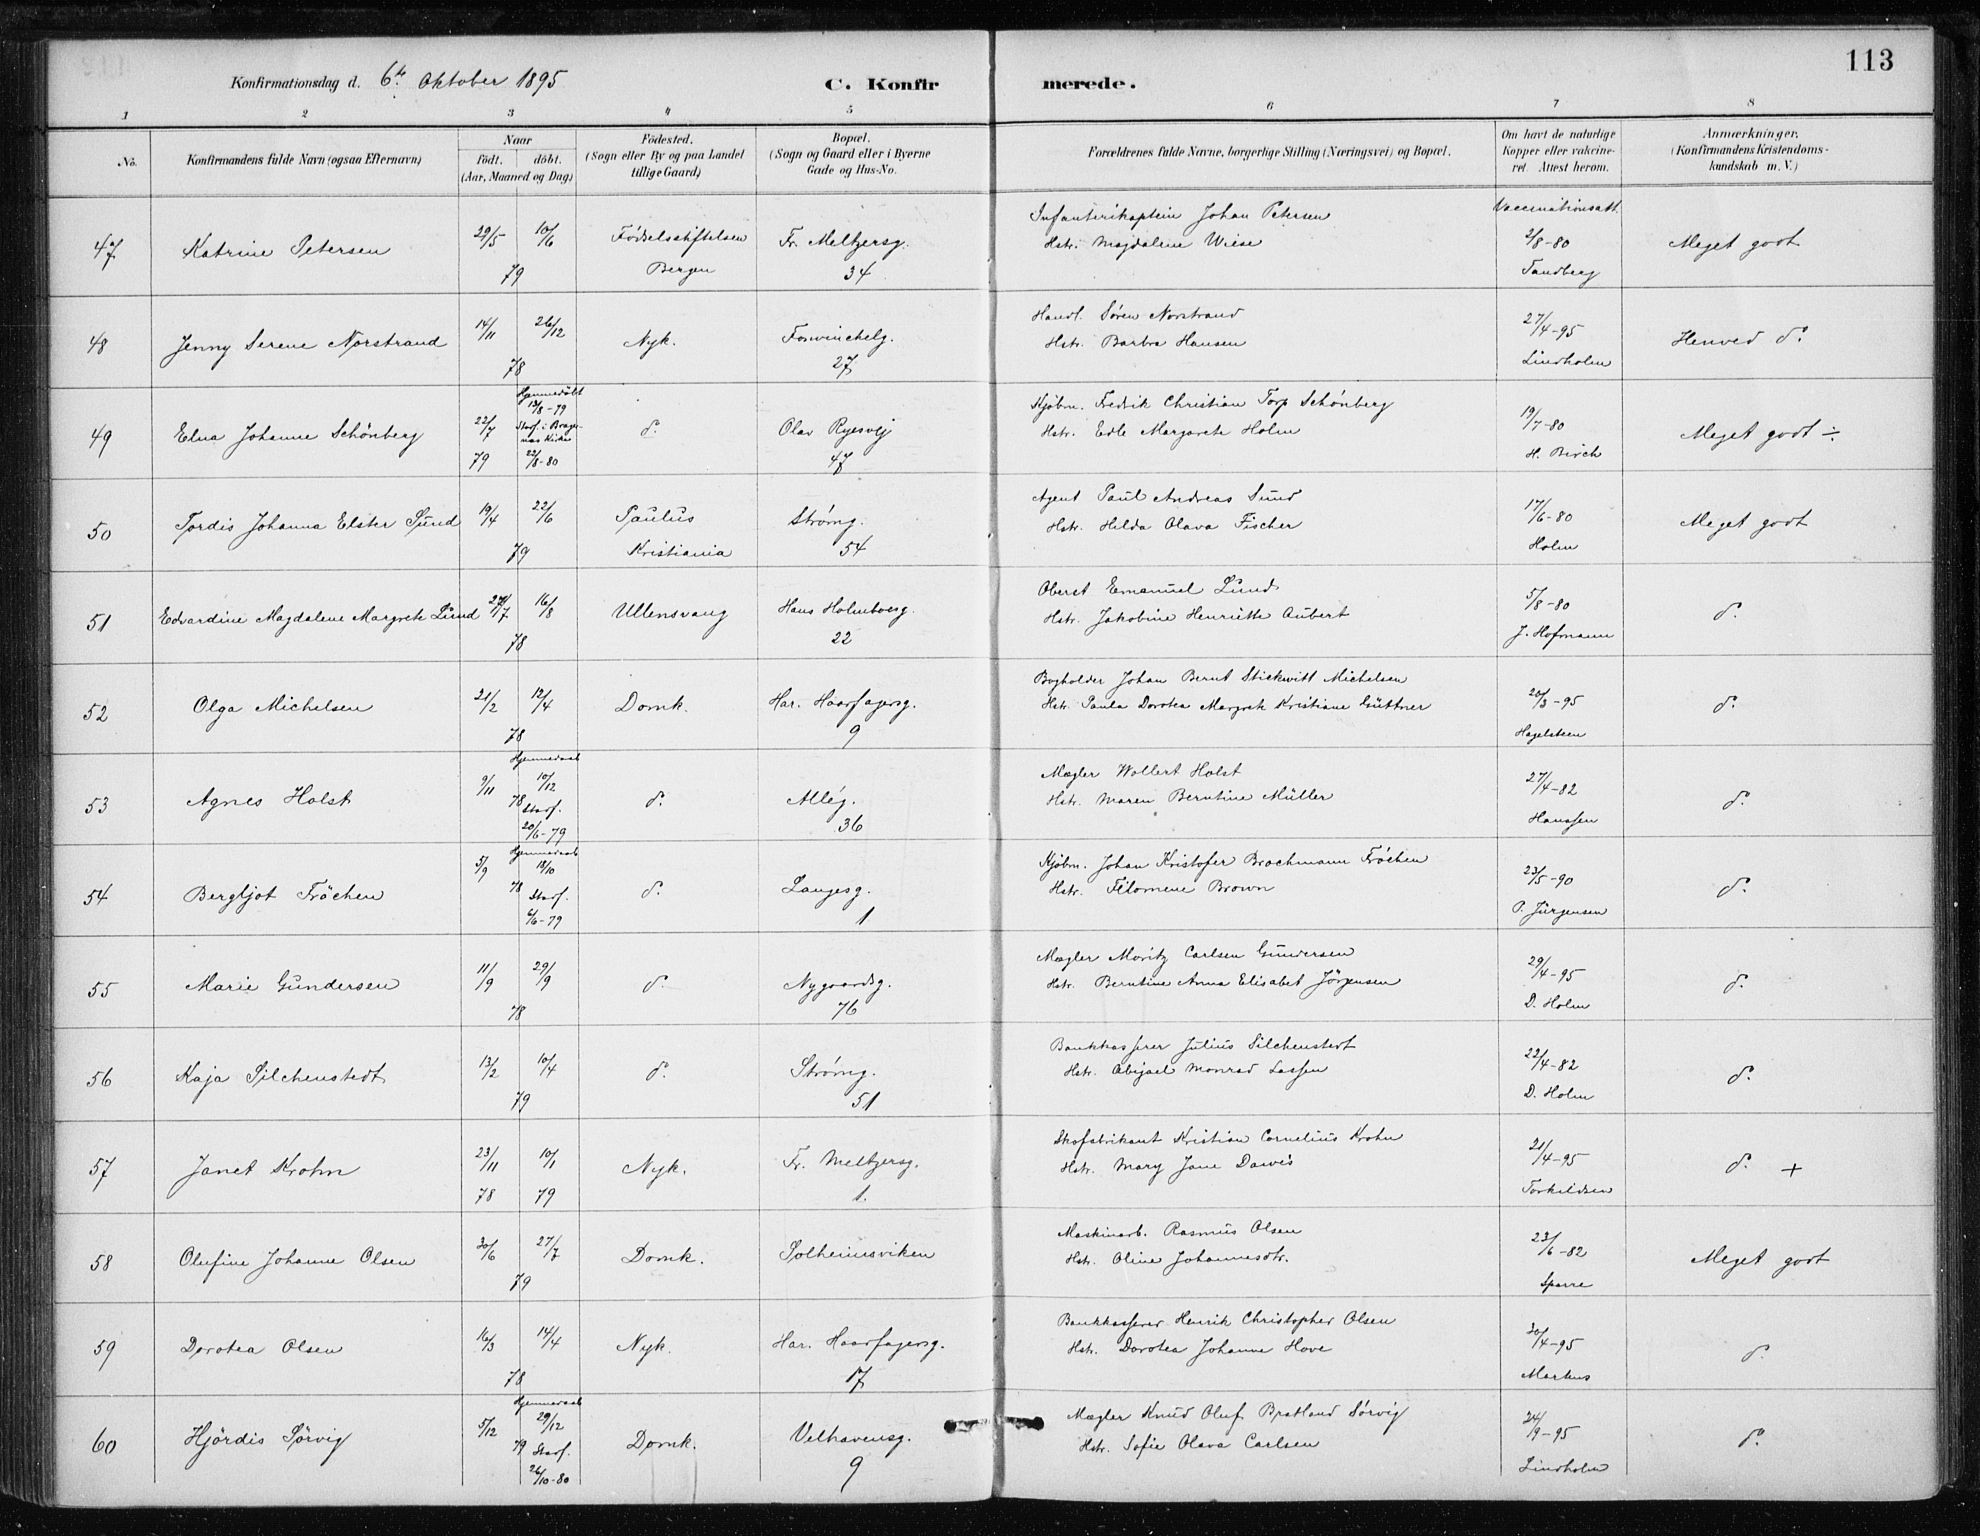 113
Konfirmationsdag d. 6te Oktober 1895 C. Konfir merede.
1 2 3 4 5 6 7 8
No. Konfirmandens fulde Navn (ogsaa Efternavn) Naar födt. döbt. (Aar, Maaned og Dag) Födested. (Sogn eller By og paa Landet tillige Gaard) Bopæl. (Sogn og Gaard eller i Byerne Gade og Hus-No. Forældrenes fulde Navne, borgerlige Stilling (Næringsvei) og Bopæl. Om havt de naturlige Kopper eller vakcineret. Attest herom. Anmærkninger. (Konfirmandens Kristendomskundskab m. V.)
47 Katrine Petersen 29/5 10/6 79 Fødselsstiftelsen Bergen Fr. Meltzersg. 34 Infanterikaptein Johan Petersen Hstr. Magdalene Wiese Vaccinationsatt. 2/8-80 Tandberg Meget godt
48 Jenny Serene Norstrand 14/11 26/12 78 Nyk. Fosvinckelg. 27 Handl. Søren Norstrand Hstr. Barbra Hansen 27/4-95 Lindholm Henved do
49 Elna Johanne Schönberg 22/7 79 Hjemmedöbt 13/8-79 Stadf. i Bragernæs Kirke 22/8-80 do Olav Ryesvej 47 Kjøbm. Fredrik Christian Torp Schönberg Hstr. Edle Margarete Holm 19/7-80 H. Birch Meget godt ÷
50 Tordis Johanna Elster Sund 19/4 22/6 79 Paulus Kristiania Strømg. 54 Agent Paul Andreas Sund Hstr. Hilda Olava Fischer 17/6-80 Holm Meget godt
51 Edvardine Magdalene Margrete Lund 27/7 16/8 78 Ullensvang Hans Holmboesg. 22 Oberst Emanuel Lund Hstr. Jakobine Henriette Aubert 5/8-80 J. Hofmann do
52 Olga Michelsen 21/2 12/4 78 Domk. Har. Haarfagersg. 9 Bogholder Johan Bernt Stickwitt Michelsen Hstr. Paula Dorotea Margrete Kristiane Güttner 20/3-95 Hagelsteen do
53 Agnes Holst 9/11 78 Hjemmedøbt 10/12 Stadf. 20/6-79 do Allég. 36 Mægler Wollert Holst Hstr. Maren Berntine Müller 27/4-82 Hanssen do
54 Bergljot Fröchen 5/9 78 Hjemmedøbt 18/10 Stadf. 6/6-79 do Langesg. 1 Kjøbm. Johan Kristofer Brochmann Fröchen Hstr. Filomene Brown 23/5-90 P. Jürgensen do
55 Marie Gundersen 11/9 29/9 78 do Nygaardsg. 76 Mægler Moritz Carlsen Gundersen Hstr. Berntine Anna Elisabet Jörgensen 29/4-95 D. Holm do
56 Kaja Silchenstedt 13/2 10/4 79 do Strømg. 51 Bankkasserer Julius Silchenstedt Hstr. Abigael Monrad Lassen 22/4-82 D. Holm do
57 Janet Krohn 23/11 78 10/1 79 Nyk. Fr. Meltzersg. 1. Skofabrikant Kristian Cornelius Krohn Hstr. Mary Jane Dawes 21/4-95 Torkildsen do +
58 Olufine Johanne Olsen 30/6 27/7 79 Domk. Solheimsviken Maskinarb. Rasmus Olsen Hstr. Oline Johannesdtr. 23/6-82 Sparre Meget godt
59 Dorotea Olsen 16/3 14/4 78 Nyk. Har. Haarfagersg. 17 Bankkasserer Henrik Christopher Olsen Hstr. Dorotea Johanne Hove 30/4-95 Martens do
60 Hjördis Sørvig 5/12 79 Hjemmedøbt 29/12 Stadf. 26/10-80 Domk. Velhavensg. 9 Mægler Knud Oluf Bratland Sörvig Hstr. Sofie Olava Carlsen 24/9-95 Lindholm do